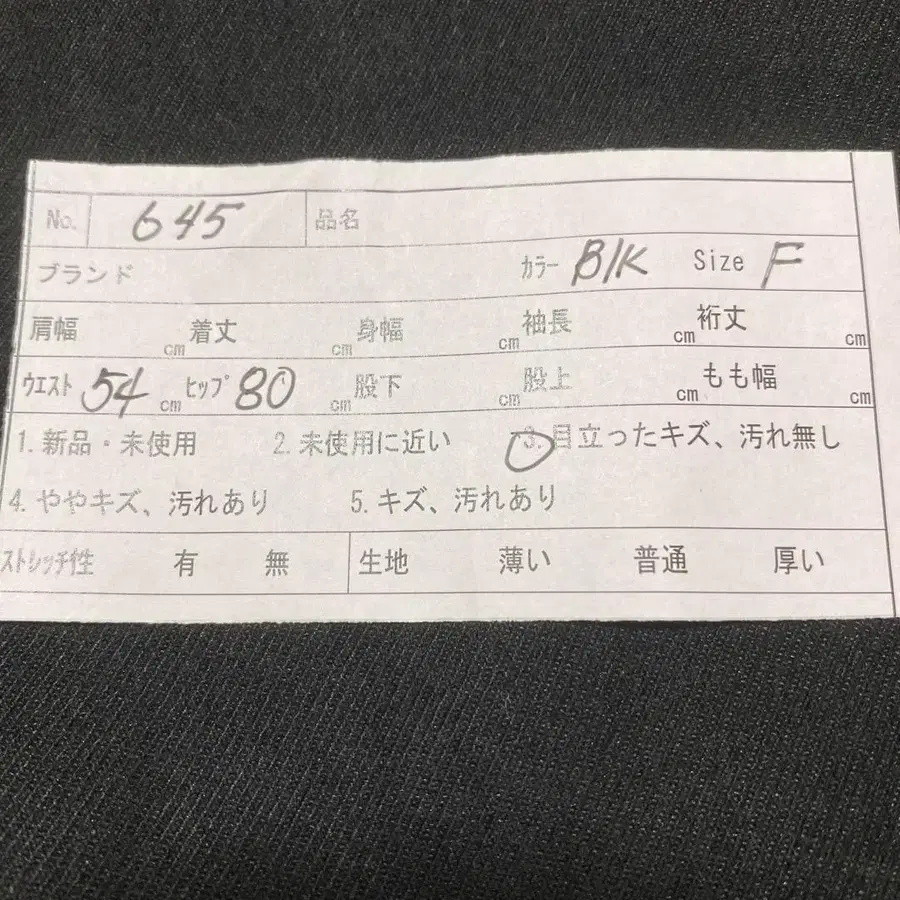 No. 645 品名
ブランド カラー Blk Size F
肩幅 cm 着丈 cm 身幅 cm 袖長 cm 裄丈 cm
ウエスト 54 cm ヒップ 80 cm 股下 cm 股上 cm もも幅 cm
1. 新品・未使用 2. 未使用に近い 3. 目立ったキズ、汚れ無し
4. ややキズ、汚れあり 5. キズ、汚れあり
ストレッチ性 有 無 生地 薄い 普通 厚い